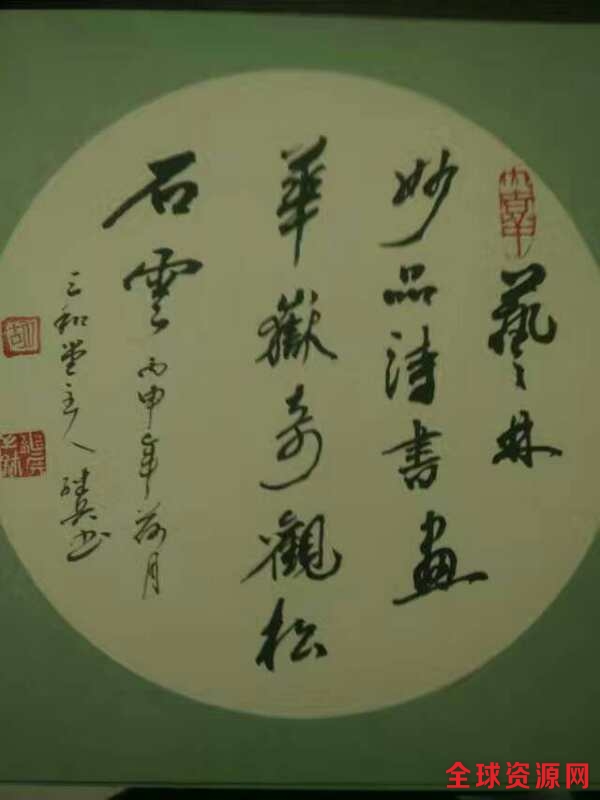 藝林
妙品詩書畫
華嶽奇觀松
石雲
丙申年荷月
三和堂主人
书
全球资源网